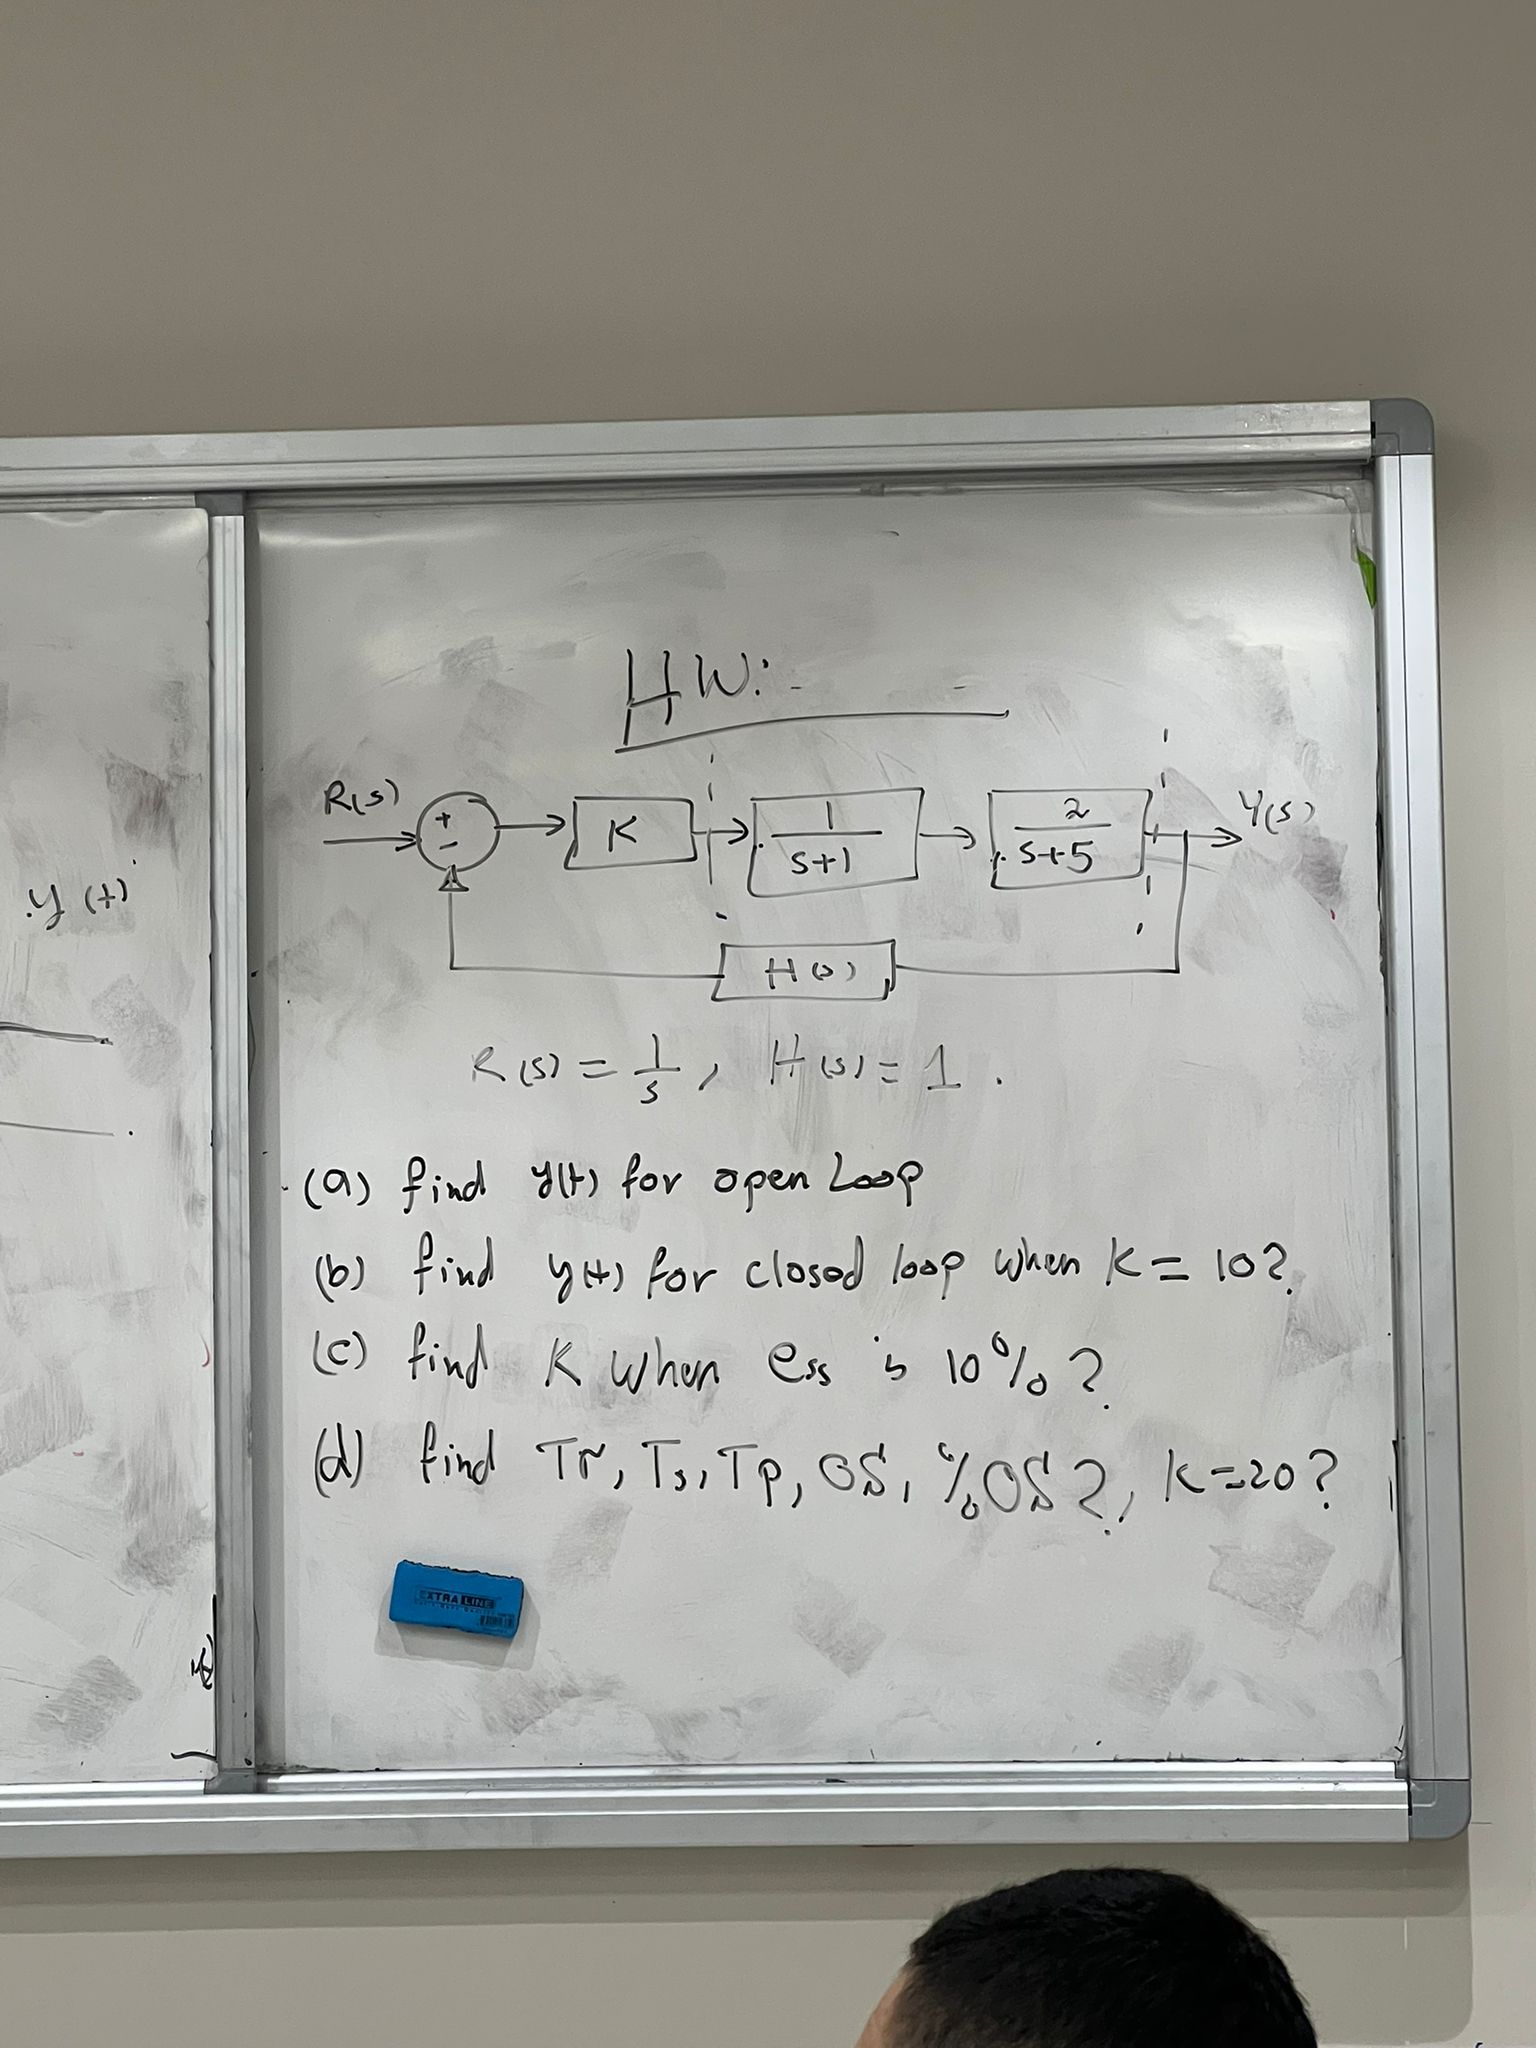 HW:
R(s) + - K 1/s+1 2/s+5 Y(s)
.y(t)
H(s)
R(s) = 1/s , H(s) = 1 .
(a) find y(t) for open Loop
(b) find y(t) for closed loop when K = 10?
(c) find K when ess is 10%?
(d) find Tr, Ts, Tp, OS, %OS?, K=20?
EXTRA LINE